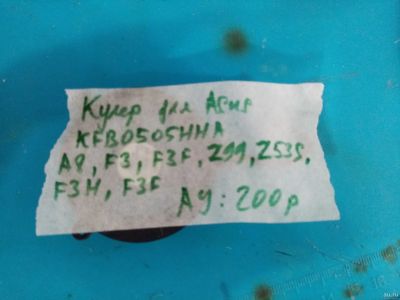 Кулер для Asus
KFB0505HHA
A8, F3, F3F, Z99, Z53S,
F3H, F3F
АУ: 200р